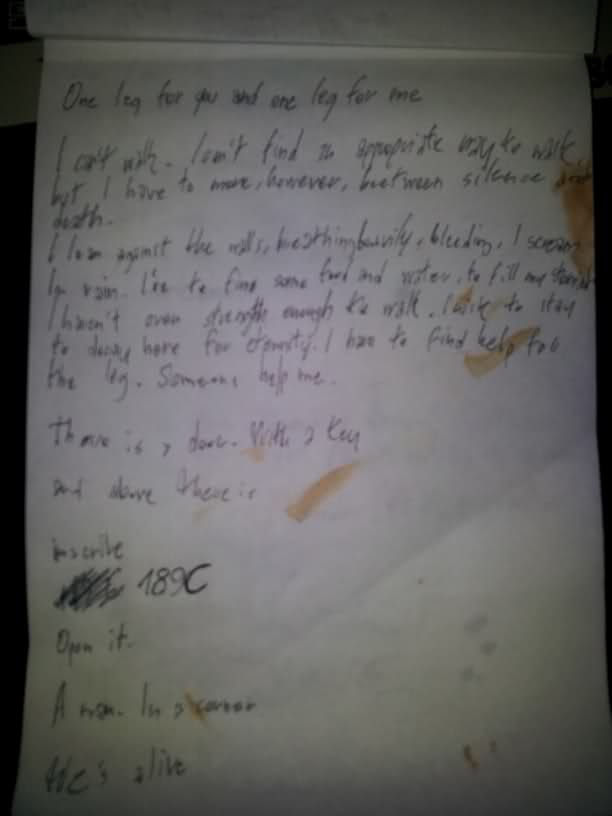 One leg for you and one leg for me
I can't walk. I can't find an appropriate way to walk,
but I have to move, however, beetween silence and
death.
I lean against the walls, breathing heavily, bleeding, I scream
In vain. I've to find some food and water, to fill my
I haven't even strength enough to walk. I to stay
to here for eternity. I have to find help for
the leg. Someone help me.
There is a door. With a key
and above there is
inscribe
189C
Open it.
A man. In a corner
He's alive